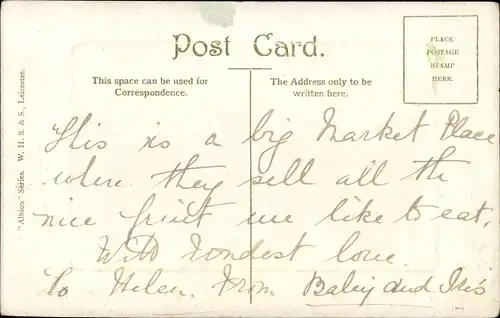 Post Card.
PLACE
POSTAGE
STAMP
HERE.
This space can be used for
Correspondence.
The Address only to be
written here.
"Albion" Series. W. H. S. & S., Leicester.
This is a big Market Place
where they sell all the
nice fruit we like to eat,
With fondest love
To Helen. From and Iris